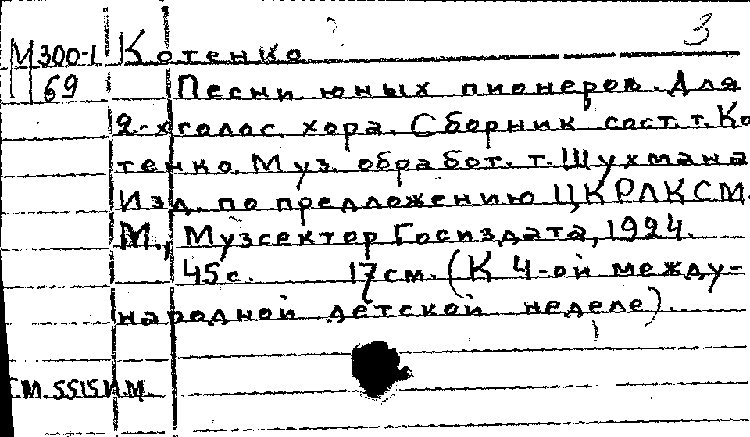 3
М300-1 Котенко
69 Песни юных пионеров. Для
2-х голос. хора. Сборник сост. т. Ко
тенко. Муз. обработ. т. Шухмана
Изд. по предложению ЦКРЛКСМ.
М., Музсектор Госиздата, 1924.
45 с. 17 см. (К 4-ой между-
народной детской неделе).